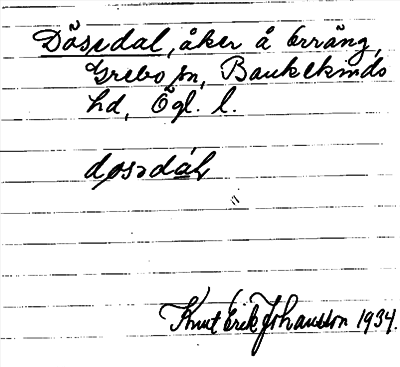 Dösedal, åker å Erräng,
Grebo sn, Bankekinds
hd, Ögl. l.
døsədàl
Knut Erik Johansson 1934.